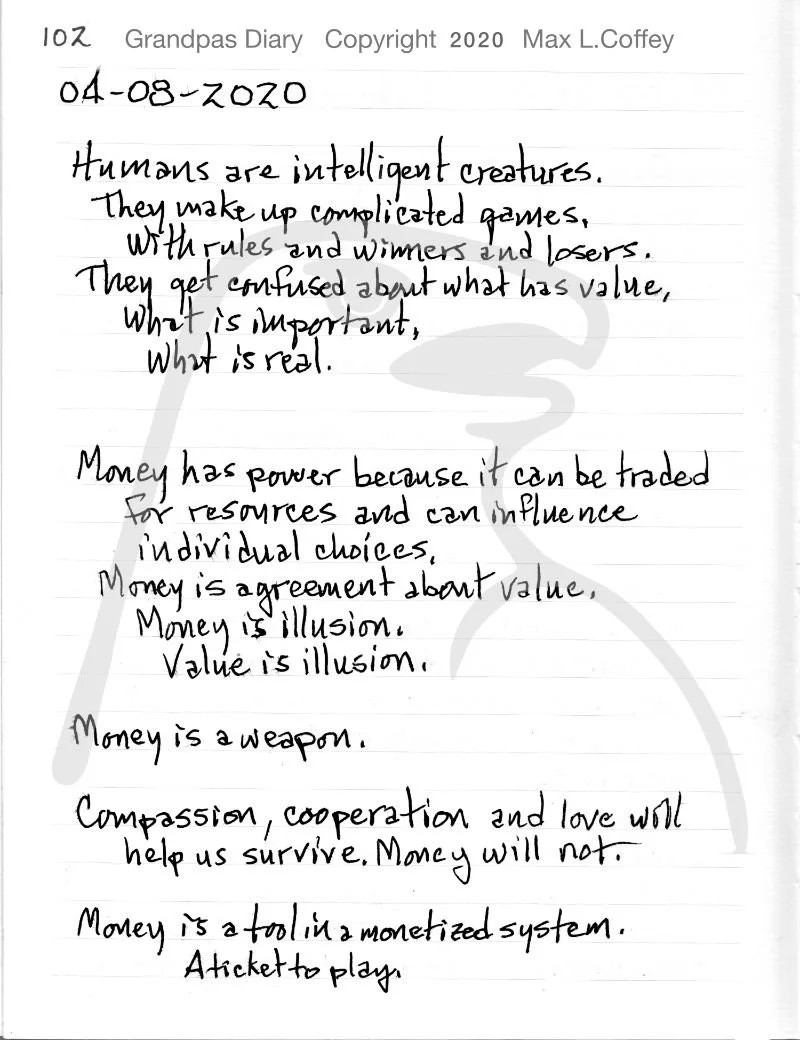 102 Grandpas Diary Copyright 2020 Max L.Coffey
04-08-2020
Humans are intelligent creatures.
They make up complicated games,
With rules and winners and losers.
They get confused about what has value,
What is important,
What is real.
Money has power because it can be traded
for resources and can influence
individual choices,
Money is agreement about value.
Money is illusion.
Value is illusion.
Money is a weapon.
Compassion, cooperation and love will
help us survive. Money will not.
Money is a tool in a monetized system.
A ticket to play.